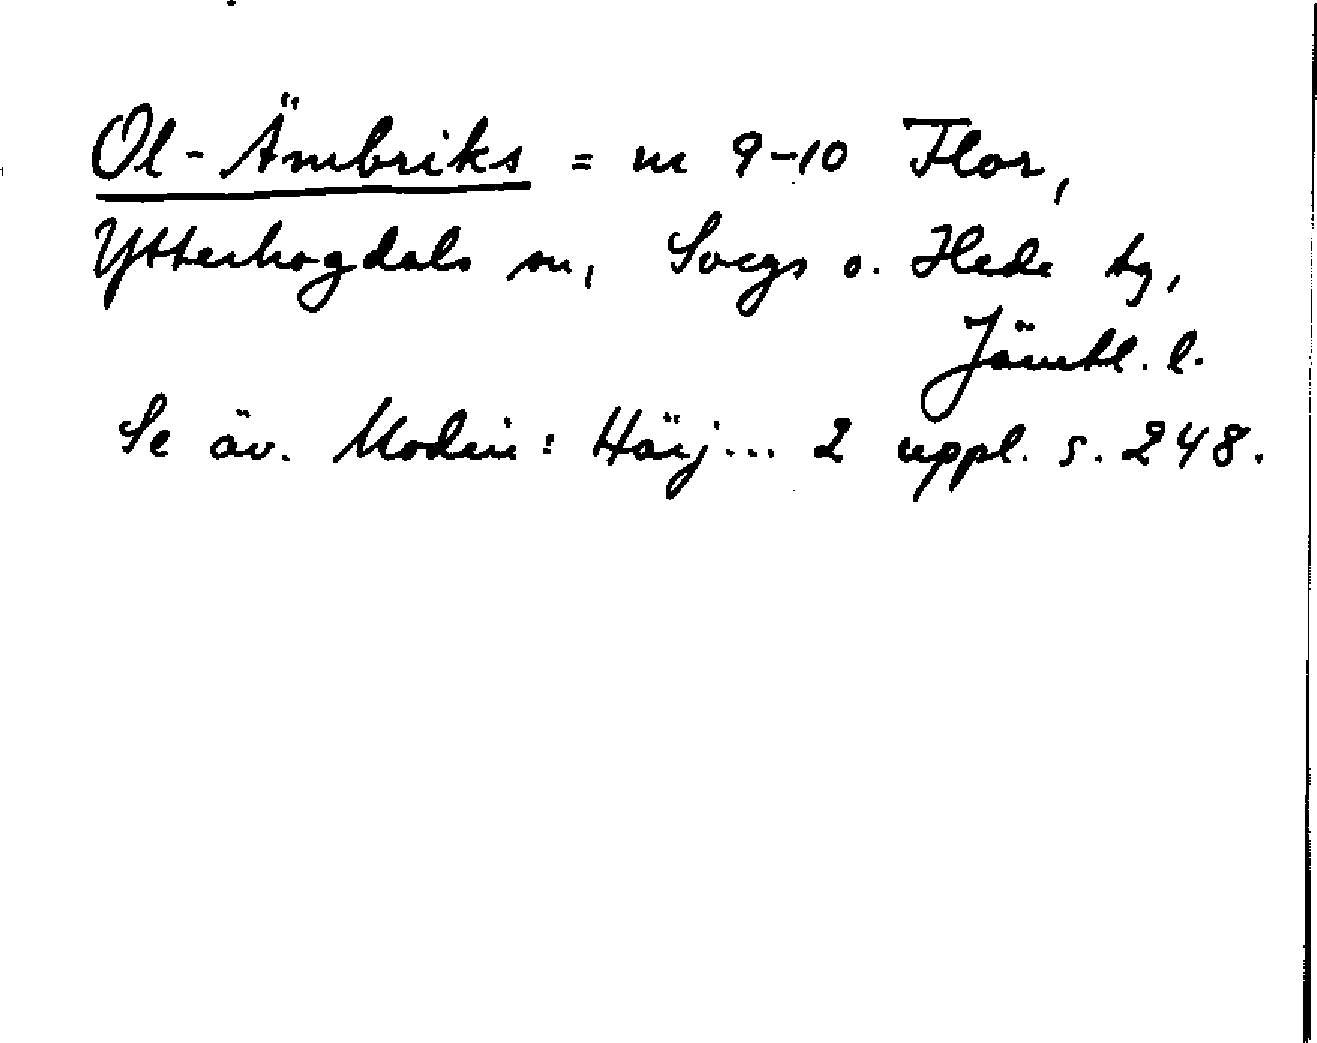 Ol-Ämbriks = nr 9-10 Flor,
Ytterhogdals sn, Svegs o. Hede tg,
Jämtl. l.
Se äv. Modin: Härj... 2 uppl. s. 248.